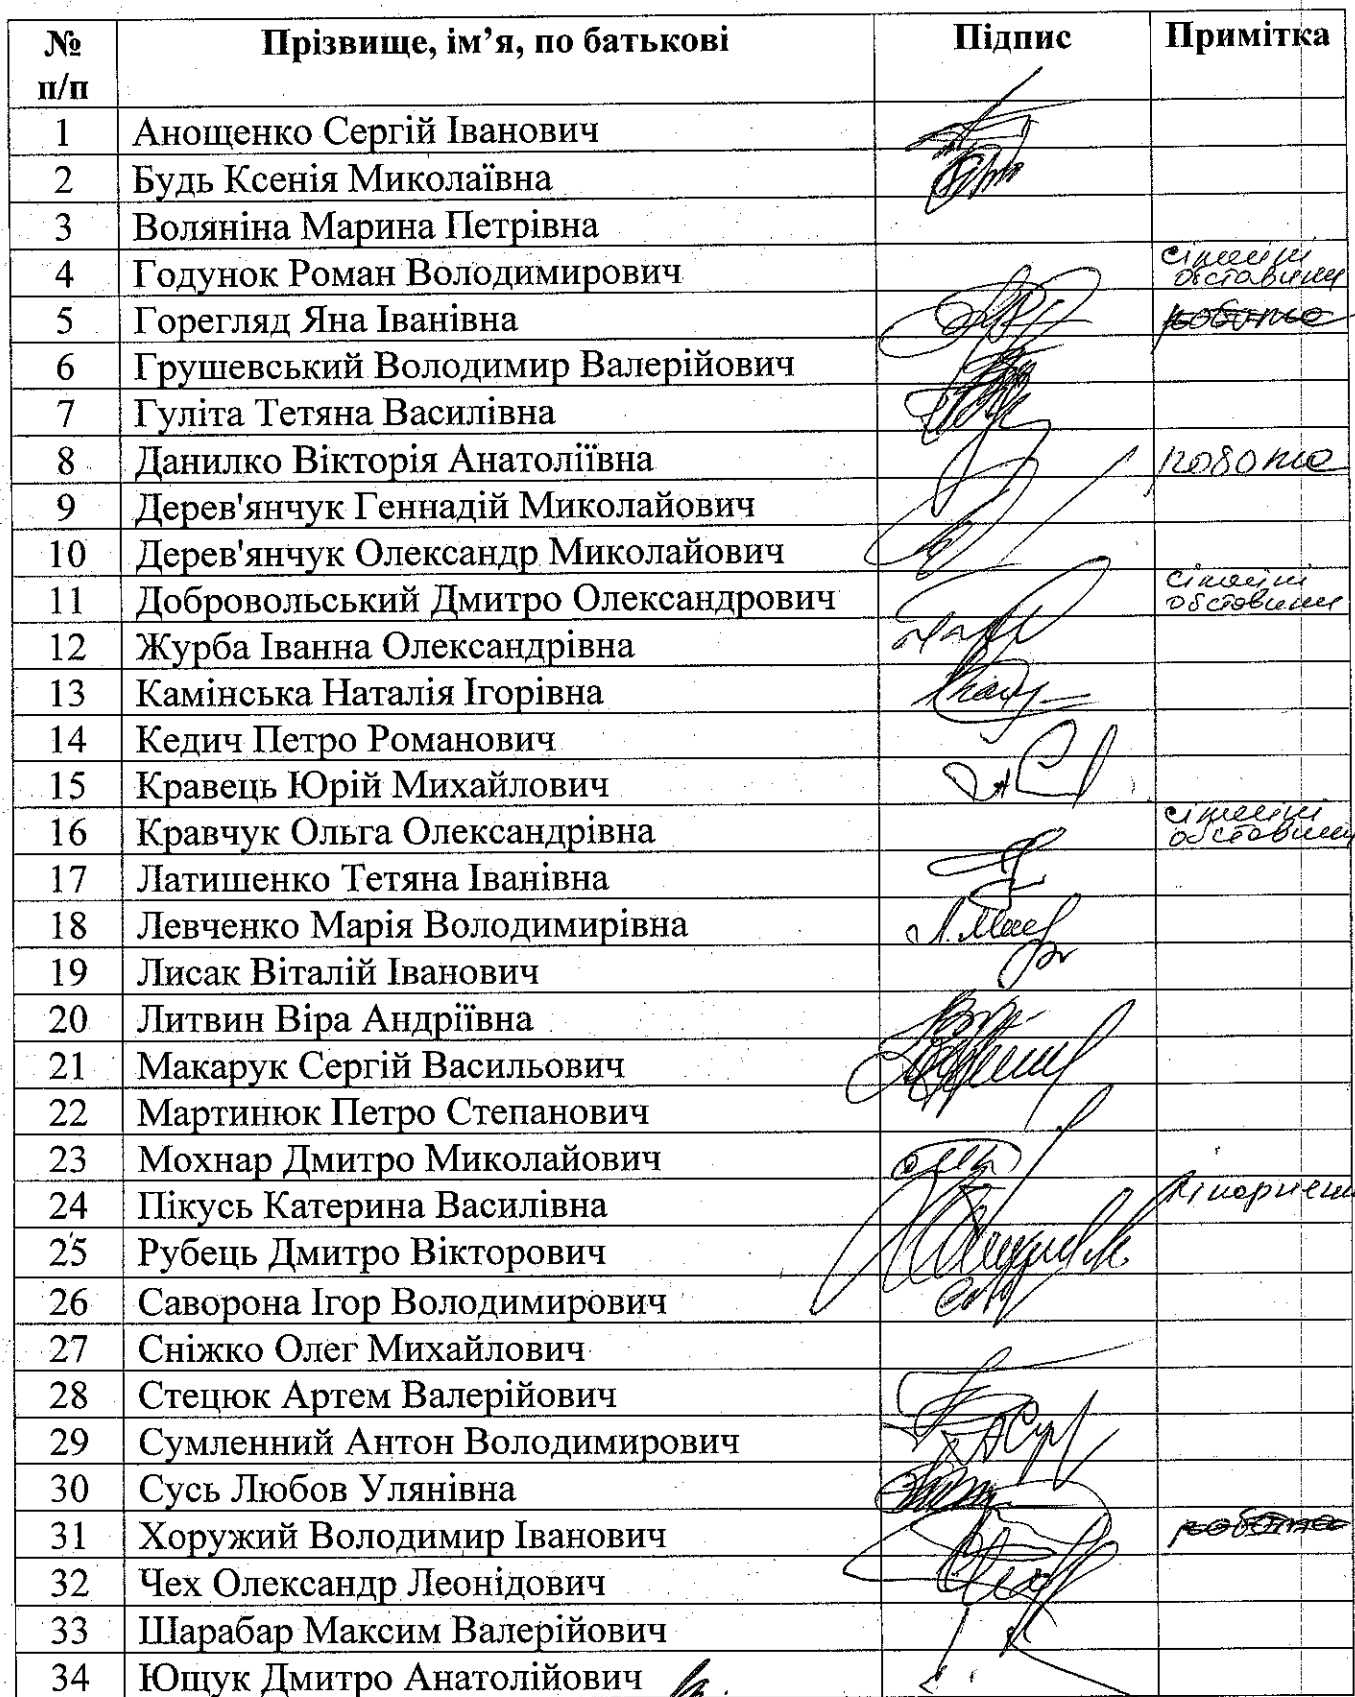 № п/п Прізвище, ім’я, по батькові Підпис Примітка
1 Анощенко Сергій Іванович
2 Будь Ксенія Миколаївна
3 Воляніна Марина Петрівна
4 Годунок Роман Володимирович сімейні обставини
5 Горегляд Яна Іванівна робота
6 Грушевський Володимир Валерійович
7 Гуліта Тетяна Василівна
8 Данилко Вікторія Анатоліївна робота
9 Дерев'янчук Геннадій Миколайович
10 Дерев'янчук Олександр Миколайович
11 Добровольський Дмитро Олександрович сімейні обставини
12 Журба Іванна Олександрівна
13 Камінська Наталія Ігорівна
14 Кедич Петро Романович
15 Кравець Юрій Михайлович
16 Кравчук Ольга Олександрівна сімейні обставини
17 Латишенко Тетяна Іванівна
18 Левченко Марія Володимирівна
19 Лисак Віталій Іванович
20 Литвин Віра Андріївна
21 Макарук Сергій Васильович
22 Мартинюк Петро Степанович
23 Мохнар Дмитро Миколайович
24 Пікусь Катерина Василівна
25 Рубець Дмитро Вікторович
26 Саворона Ігор Володимирович
27 Сніжко Олег Михайлович
28 Стецюк Артем Валерійович
29 Сумленний Антон Володимирович
30 Сусь Любов Улянівна
31 Хоружий Володимир Іванович робота
32 Чех Олександр Леонідович
33 Шарабар Максим Валерійович
34 Ющук Дмитро Анатолійович